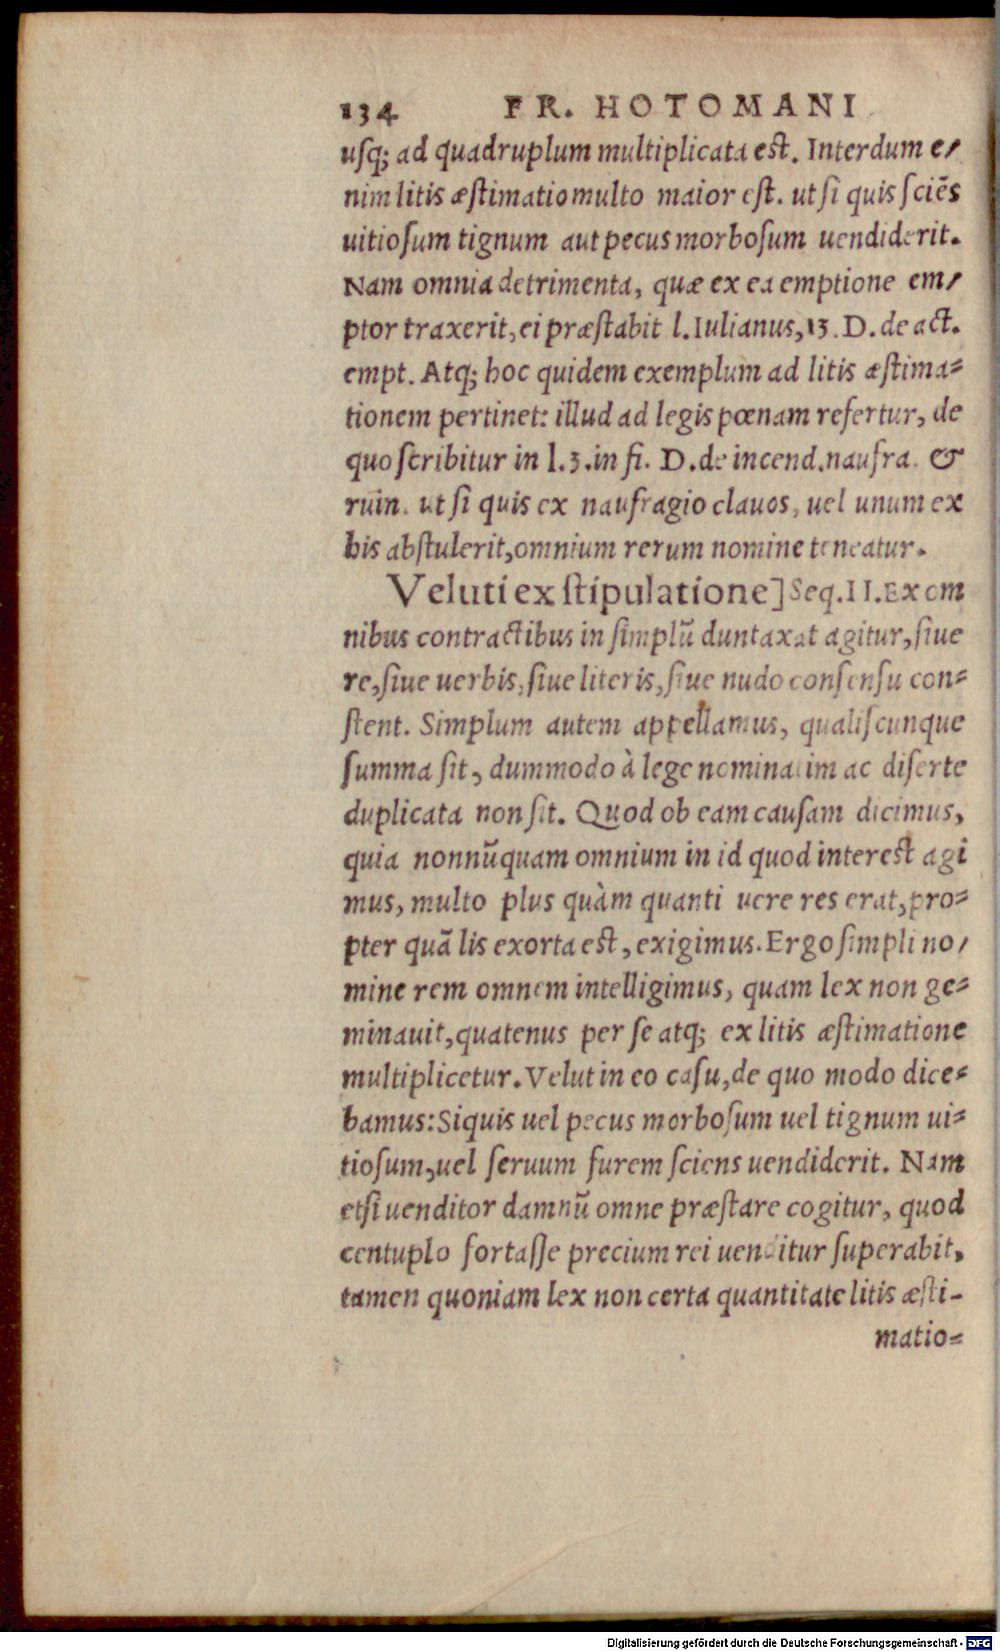 134 FR. HOTOMANI
usq; ad quadruplum multiplicata est. Interdum e/
nim litis æstimatio multo maior est. ut si quis sciēs
uitiosum tignum aut pecus morbosum uendiderit.
Nam omnia detrimenta, quæ ex ea emptione em/
ptor traxerit, ei præstabit l. Iulianus, 13. D. de act.
empt. Atq; hoc quidem exemplum ad litis æstima-
tionem pertinet: illud ad legis pœnam refertur, de
quo scribitur in l. 3. in fi. D. de incend. naufra. &
ruin. ut si quis ex naufragio clauos, uel unum ex
his abstulerit, omnium rerum nomine teneatur.
Veluti ex stipulatione] Seq. II. Ex om
nibus contractibus in simplū duntaxat agitur, siue
re, siue uerbis, siue literis, siue nudo consensu con-
stent. Simplum autem appellamus, qualiscunque
summa sit, dummodo à lege nominatim ac diserte
duplicata non sit. Quod ob eam causam dicimus,
quia nonnūquam omnium in id quod interest agi
mus, multo plus quàm quanti uere res erat, pro-
pter quā lis exorta est, exigimus. Ergo simpli no/
mine rem omnem intelligimus, quam lex non ge-
minauit, quatenus per se atq; ex litis æstimatione
multiplicetur. Velut in eo casu, de quo modo dice-
bamus: Siquis uel pecus morbosum uel tignum ui-
tiosum, uel seruum furem sciens uendiderit. Nam
etsi uenditor damnū omne præstare cogitur, quod
centuplo fortasse precium rei uenditur superabit,
tamen quoniam lex non certa quantitate litis æsti-
matio-
Digitalisierung gefördert durch die Deutsche Forschungsgemeinschaft - DFG